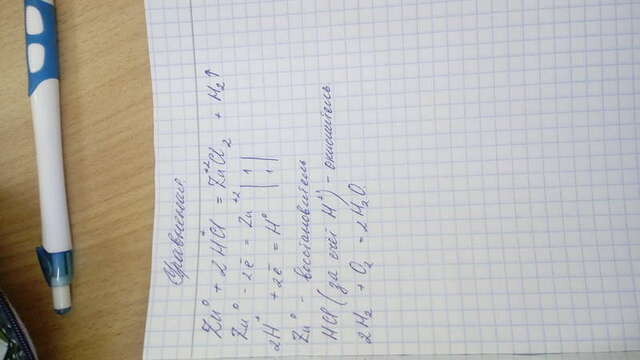 Уравнения
Zn⁰ + 2H⁺Cl = Zn⁺²Cl₂ + H₂↑
Zn⁰ - 2ē = Zn⁺² | 1 |
2H⁺ + 2ē = H⁰ | 1 |
Zn⁰ - восстановитель
HCl (за счёт H⁺) - окислитель
2H₂ + O₂ = 2H₂O.